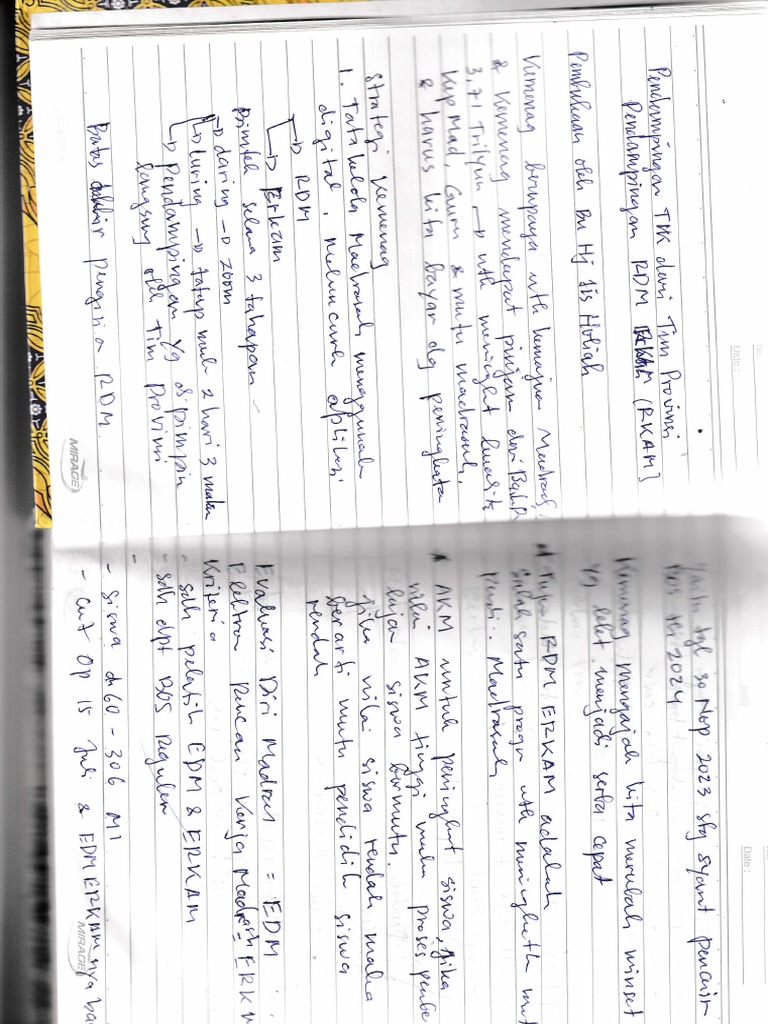 Pendampingan TIK dari Tim Provinsi
Pendampingan RDM ERKAM (RKAM)
Pembukaan oleh Bu Hj Iis Holiah
Kemenag berupaya utk kemajuan Madras,
& Kemenag mendapat pinjan dari
3,71 Trilyun → utk meninght kualits
Kep Mad, Guru & mutu madrasah,
& harus kita bayar dg peningkata
Strategi Kemenag
1. Tata kelola Madrasah menggunak
digital. Meluncurk aplikasi
→ RDM
→ Erkam
Bimtek selama 3 tahapan
→ daring → zoom
→ luring → tatap muk 2 hari 3 malam
→ Pendampingan yg dipimpin
langsung oleh Tim Provinsi
Batas akhir pengisia RDM
MIRAGE
yaitu tgl 30 Nop 2023 sbg syarat pencair
Bos th 2024
Kemenag mengajak kita merubah minset
yg lelet menjadi serba cepat
* RDM ERKAM adalah
salah satu progr utk meninghtk mut
Pendi. Madrasah
* AKM untuk peninght siswa, jika
nilai AKM tinggi maka proses pembe
lajar siswa bermutu.
jika nilai siswa rendah maka
berarti mutu pendidik siswa
rendah
Evaluasi Diri Madras = EDM
Elektron Rencan Kerja Madrasah = ERKAM
Kriteria
- sdh pelatih EDM & ERKAM
- sdh dpt BOS Reguler
-
- siswa 60 - 306 MI
- cut Op 15 Juli & EDM ERKAM nya
MIRAGE
No.
Date :
Date :